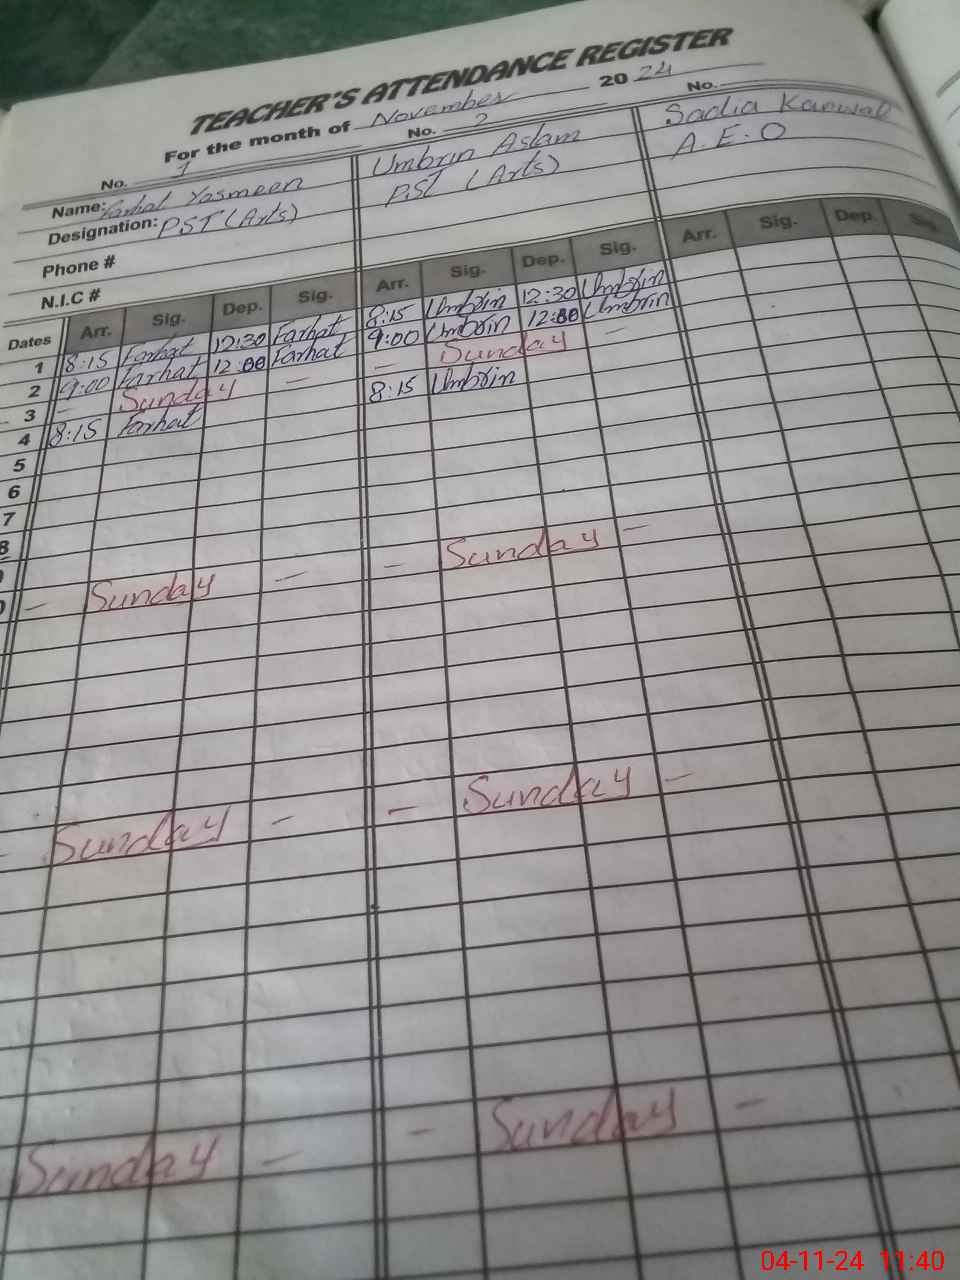 TEACHER'S ATTENDANCE REGISTER
For the month of November 2024
No. 1 No. 2 No.
Name: Farhat Yasmeen Umbrin Aslam Sadia Kanwal
Designation: PST (Arts) PST (Arts) A.E.O
Phone #
N.I.C #
Dates Arr. Sig. Dep. Sig. Arr. Sig. Dep. Sig. Arr. Sig. Dep. Sig.
1 8:15 Farhat 12:30 Farhat 8:15 Umbrin 12:30 Umbrin
2 9:00 Farhat 12:00 Farhat 9:00 Umbrin 12:00 Umbrin
3 - Sunday - - Sunday -
4 8:15 Farhat 8:15 Umbrin
5
6
7
8
- Sunday - - Sunday -
- Sunday - - Sunday -
Sunday - - Sunday -
04-11-24 11:40